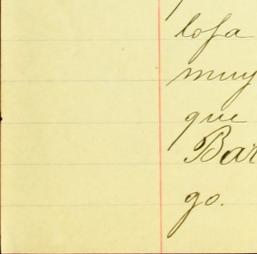 lofa
muy
que
Bar
go.